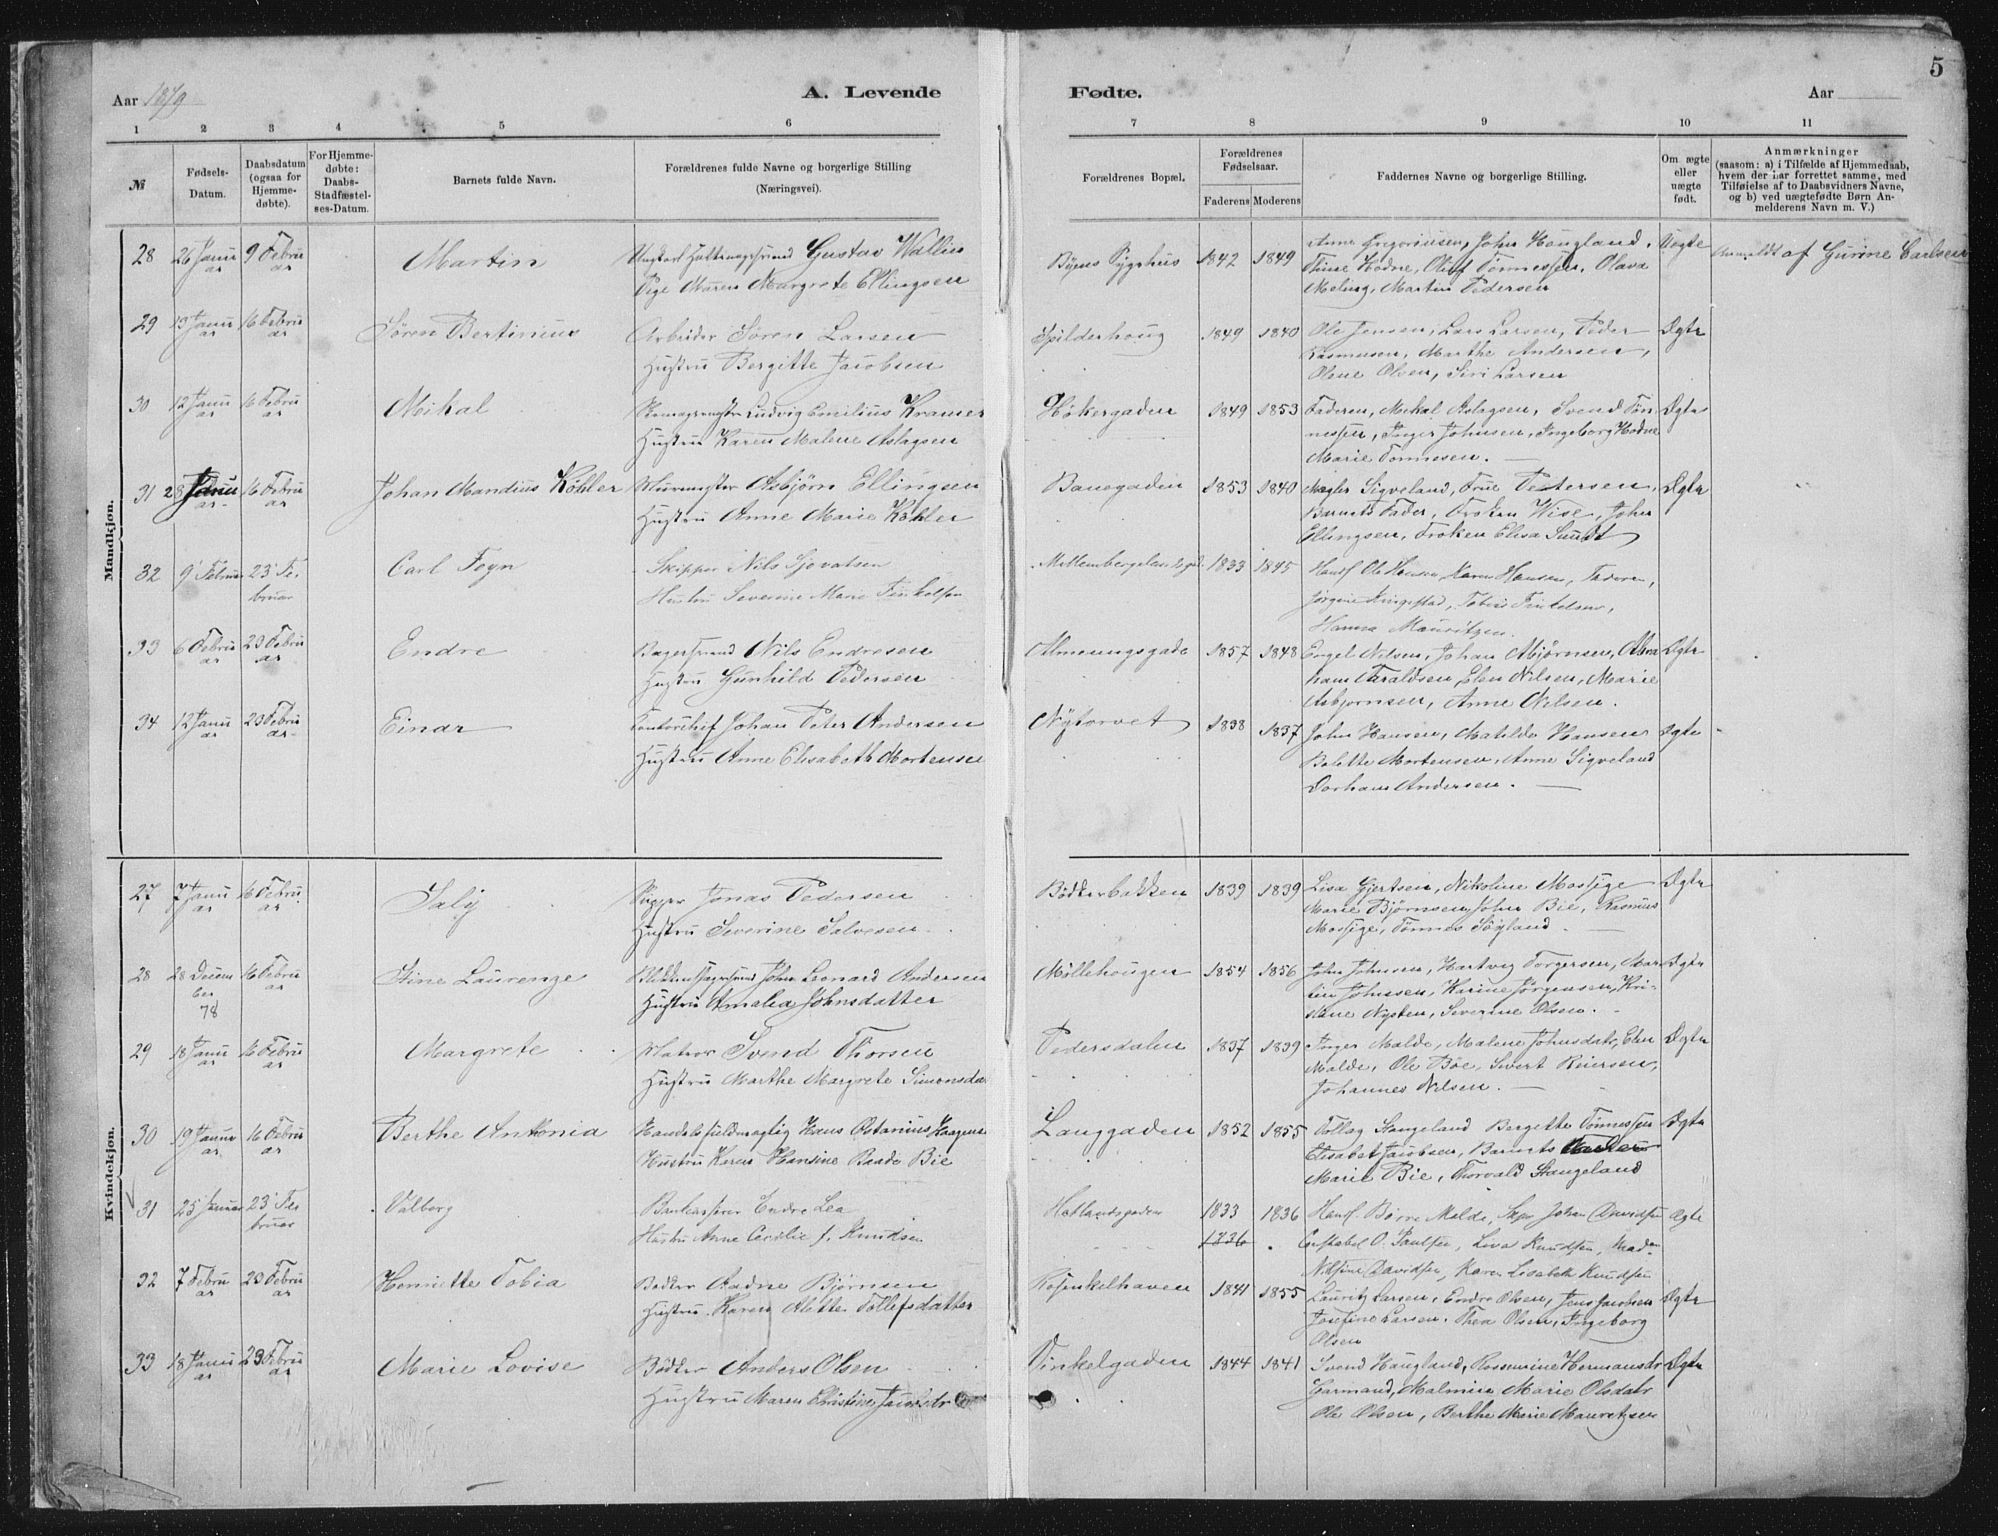 5
Aar 1879
A. Levende
Fødte.
Aar
1 2 3 4 5 6 7 8 9 10 11
№
Fødsels-
Datum.
Daabsdatum
(ogsaa for
Hjemme-
døbte).
For Hjemme-
døbte:
Daabs-
Stadfæstel-
ses-Datum.
Barnets fulde Navn.
Forældrenes fulde Navne og borgerlige Stilling
(Næringsvei).
Forældrenes Bopæl.
Forældrenes
Fødselsaar.
Faderens Moderens
Faddernes Navne og borgerlige Stilling.
Om ægte
eller
uægte
født.
Anmærkninger
(saasom: a) i Tilfælde af Hjemmedaab,
hvem der har forrettet samme, med
Tilføielse af to Daabsvidners Navne,
og b) ved uægtefødte Børn An-
melderens Navn m. V.)
Mandkjøn.
28 26 Janu 9 Febru
ar ar
Martin
Gustav Wallin
Pige Maren Margrete Ellingsen
Byens Sygehus 1842 1849
Anne Gregoriusen, John Haugland,
Thine Hodne, Oluf Tönnessen, Olava
Meling, Martin Pedersen
Uegte
Anmeldt af Gurine Carlsen
29 13 Janu 16 Febru
ar ar
Søren Bertinius
Arbeider Søren Larsen
Hustru Bergitte Jacobsen
Spilderhoug 1849 1840
Ole Jensen, Lars Larsen, Peder
Rasmusen, Marthe Andersen,
Olene Olsen, Siri Larsen
Ægte
30 12 Janu 16 Febru
ar ar
Mikal
Ludvig Emilius Kramer
Hustru Karen Malene Aslagsen
Høkergaden 1849 1853
Faderen, Mikal Aslagsen, Svend Tön
nessen, Inger Johnsen, Ingeborg Hodne
Marie Tönnesen.
Ægte
31 28 Janu 16 Febru
ar ar
Johan Mandius Köhler
Murmester Asbjørn Ellingsen
Hustru Anne Marie Köhler
Banegaden 1853 1840
Sigveland, Frue Petersen,
Barnets Fader, Frøken Wise, John
Ellingsen, Frøken Elisa Sundt
Ægte
32 9 Februar 23 Fe-
bruar
Carl Feyn
Skipper Nils Sjovatsen
Hustru Severine Marie
1833 1845
Ole Hansen, Karen Hansen, Faderen,
Jørgine Ringstad, Tobias
Hanna Mauritzen.
33 6 Febru 23 Febru
ar ar
Endre
Bagersvend Nils Endresen
Hustru Gunhild Pedersen
Almeningsgade 1857 1848
Engel Nilsen, Johan Asbjørnsen, Abra
ham Taraldsen, Elen Nilsen, Marie
Asbjørnsen, Anne Nilsen.
Ægte
34 12 Janu 23 Febru
ar ar
Einar
Johan Peter Andersen
Hustru Anne Elisabeth Mortensen
Nytorvet 1838 1837
John Hansen, Matilde Hansen
Bolette Mortensen, Anne Sigveland
Andersen.
Ægte
Kvindekjøn.
27 7 Janu 16 Febru
ar ar
Saly
Skipper Jonas Pedersen
Hustru Severine Salvesen
Bødkerbakken 1839 1839
Lisa Gjertsen, Nikoline Mossige
Marie Bjørnsen, John Bie, Rasmus
Mossige, Tönnes Söyland.
Ægte
28 28 Decem 16 Febru
ber ar
78
Stine Laurenze
John Leonard Andersen
Hustru Amalia Johnsdatter
Møllehougen 1854 1856
John Johnsen, Hartvig Torgersen, Mar
tin Johnsen, Karine Jørgensen, Kri-
stiane Nysten, Severine Olsen.
Ægte
29 18 Janu 16 Febru
ar ar
Margrete
Matros Svend Thorsen
Hustru Marthe Margrete Simonsdat
Pedersdalen 1837 1839
Inger Malde, Malene Johnsdatr, Elen
Malde, Ole Bøe, Sivert Reiersen,
Johannes Nilsen.
Ægte
30 19 Janu 16 Febru
ar ar
Berthe Antonia
Handelsfuldmægtig Hans Octavius
Hustru Karen Hansine Raade Bie
Langgaden 1852 1855
Tollag Stangeland Bergitte Tönnessen
Elisabet Jacobsen, Barnets Fader
Marie Bie, Thorvald Stangeland
Ægte
31 25 Januar 23 Fe-
bruar
Valborg
Bankasserer Endre Lea
Hustru Anne Cecilie f. Knudsen
Hetlandsgaden 1833 1836
1836
Børre Malde, Skpr Johan Davidsen
O. Paulsen, Lisa Knudsen, Madm
Davidsen, Karen Lisabeth Knudsen
Ægte
32 7 Febru 23 Febru
ar ar
Henriette Tobia
Bødker Aadne Bjørnsen
Hustru Karen Alette Tollefsdatter
Rosenkelhaven 1841 1855
Lauritz Larsen, Endre Olsen, Jens Jacobsen
Josefine Larsen, Thea Olsen, Ingeborg
Olsen
Ægte
33 18 Janu 23 Febru
ar ar
Marie Lovise
Bødker Anders Olsen
Hustru Maren Christine
Vinkelgaden 1844 1841
Svend Haugland, Rasmine Hermansdr
Garmand, Malmine Marie Olsdatr
Ole Olsen, Berthe Marie Mauretzen
Ægte